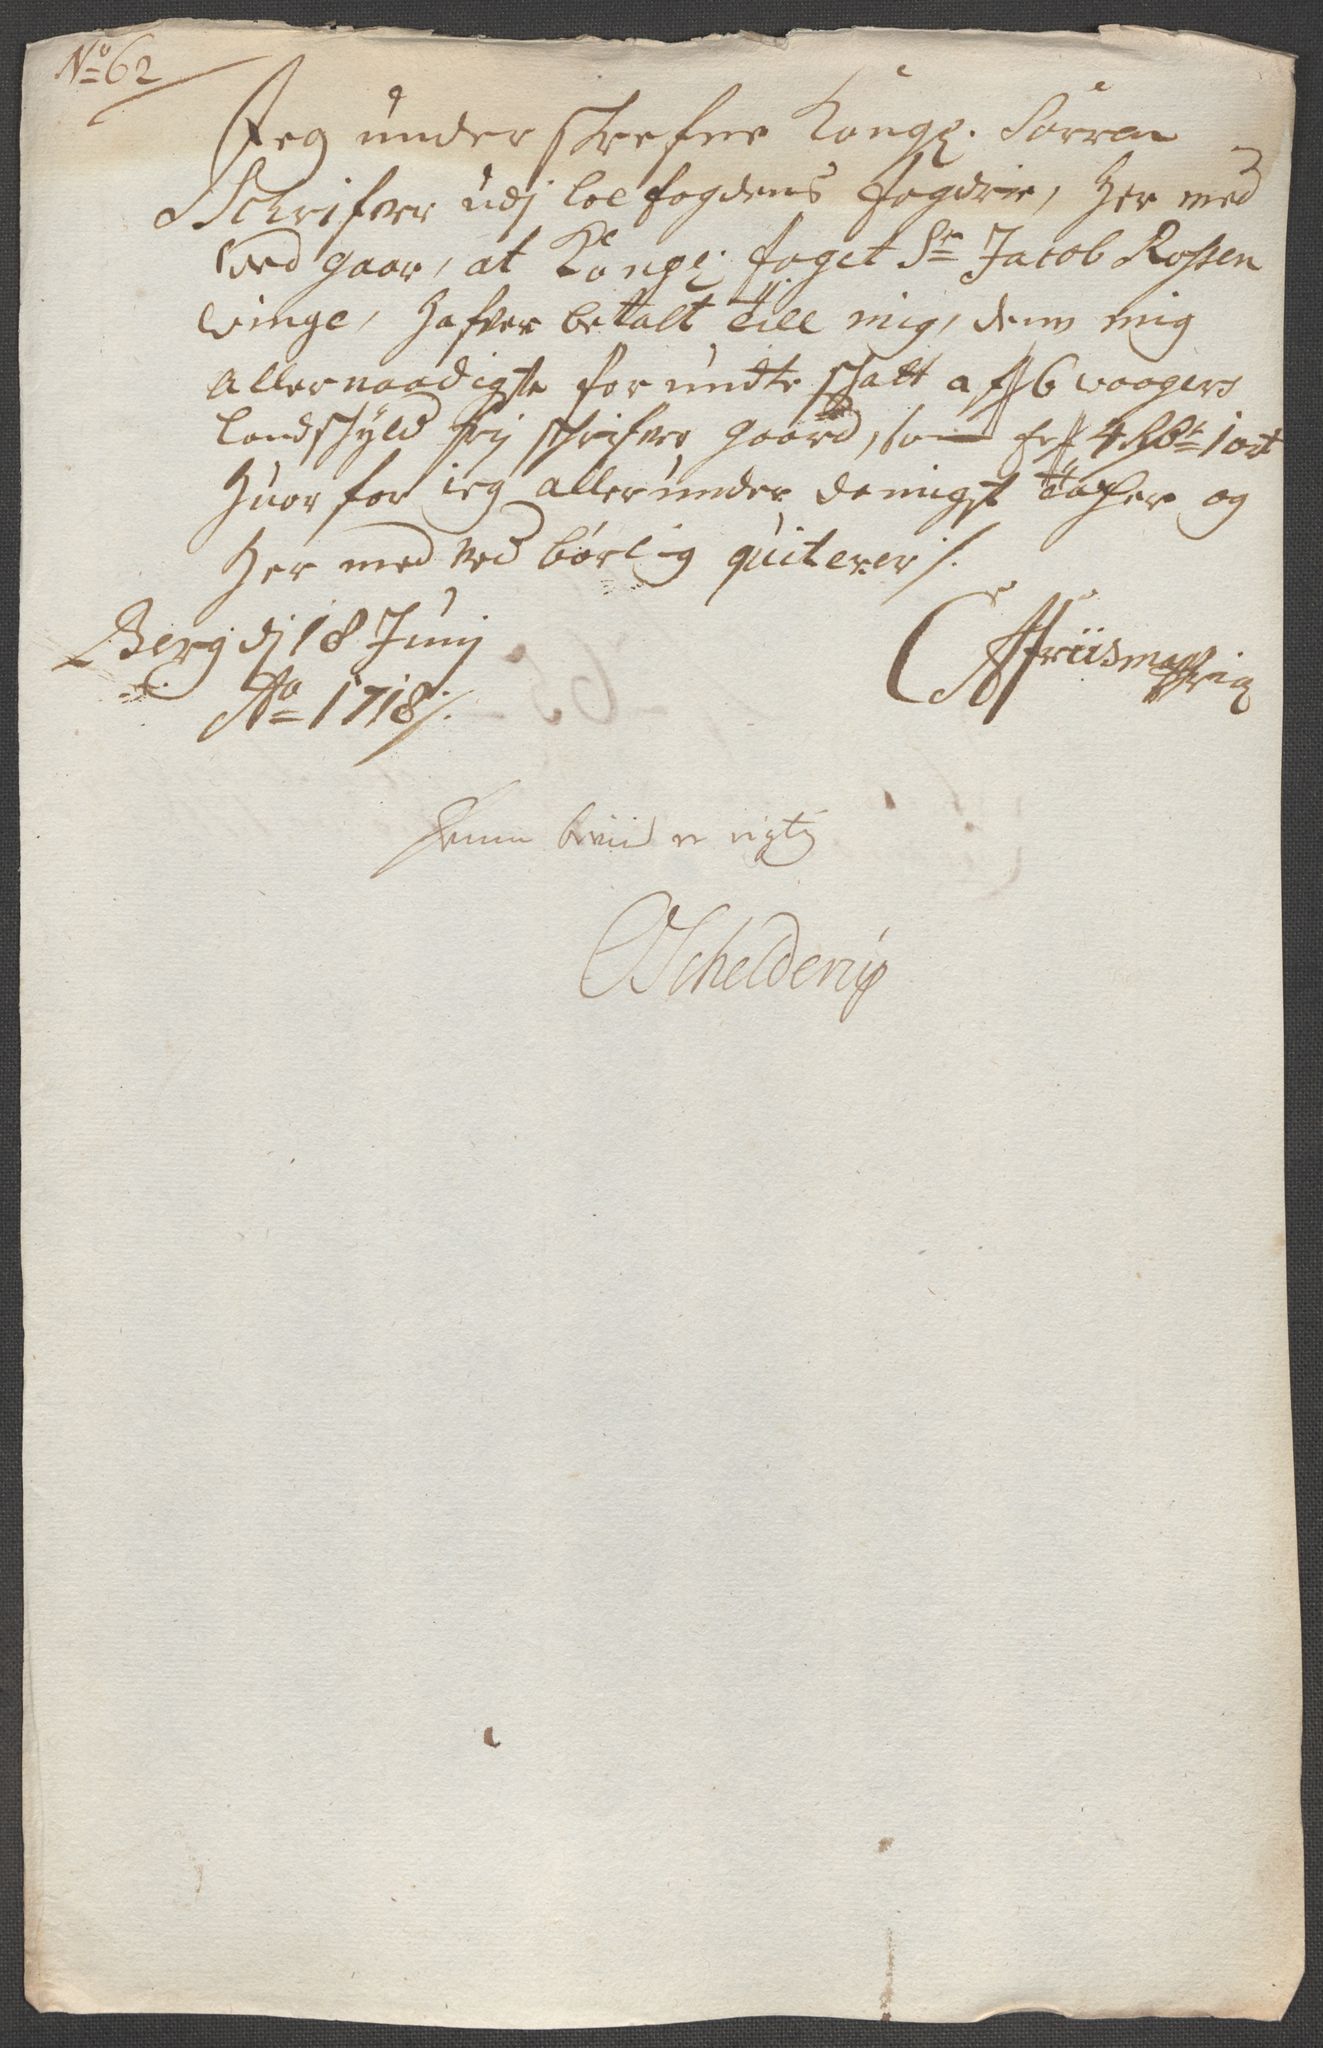 No 62
Jeg under skrefne Kongl. Sorren
Schrifver udj loe fogdens fogdrie, her med
ved gaar, at Kongl: foget Sr Jacob Rossen
winge, hafver betalt till mig, denn mig
allernaadigste forundte skatt aff 6 vaagers
landskyld frj skrifver gaard, som er 4 Rdr 1 ort
huor for ieg allerunder danigst tacher og
her med ved børlig quiterer /.
Berg dj 18 Junij
Ao 1718/.
Friis
Denne beviis er rigtig
Schelderup